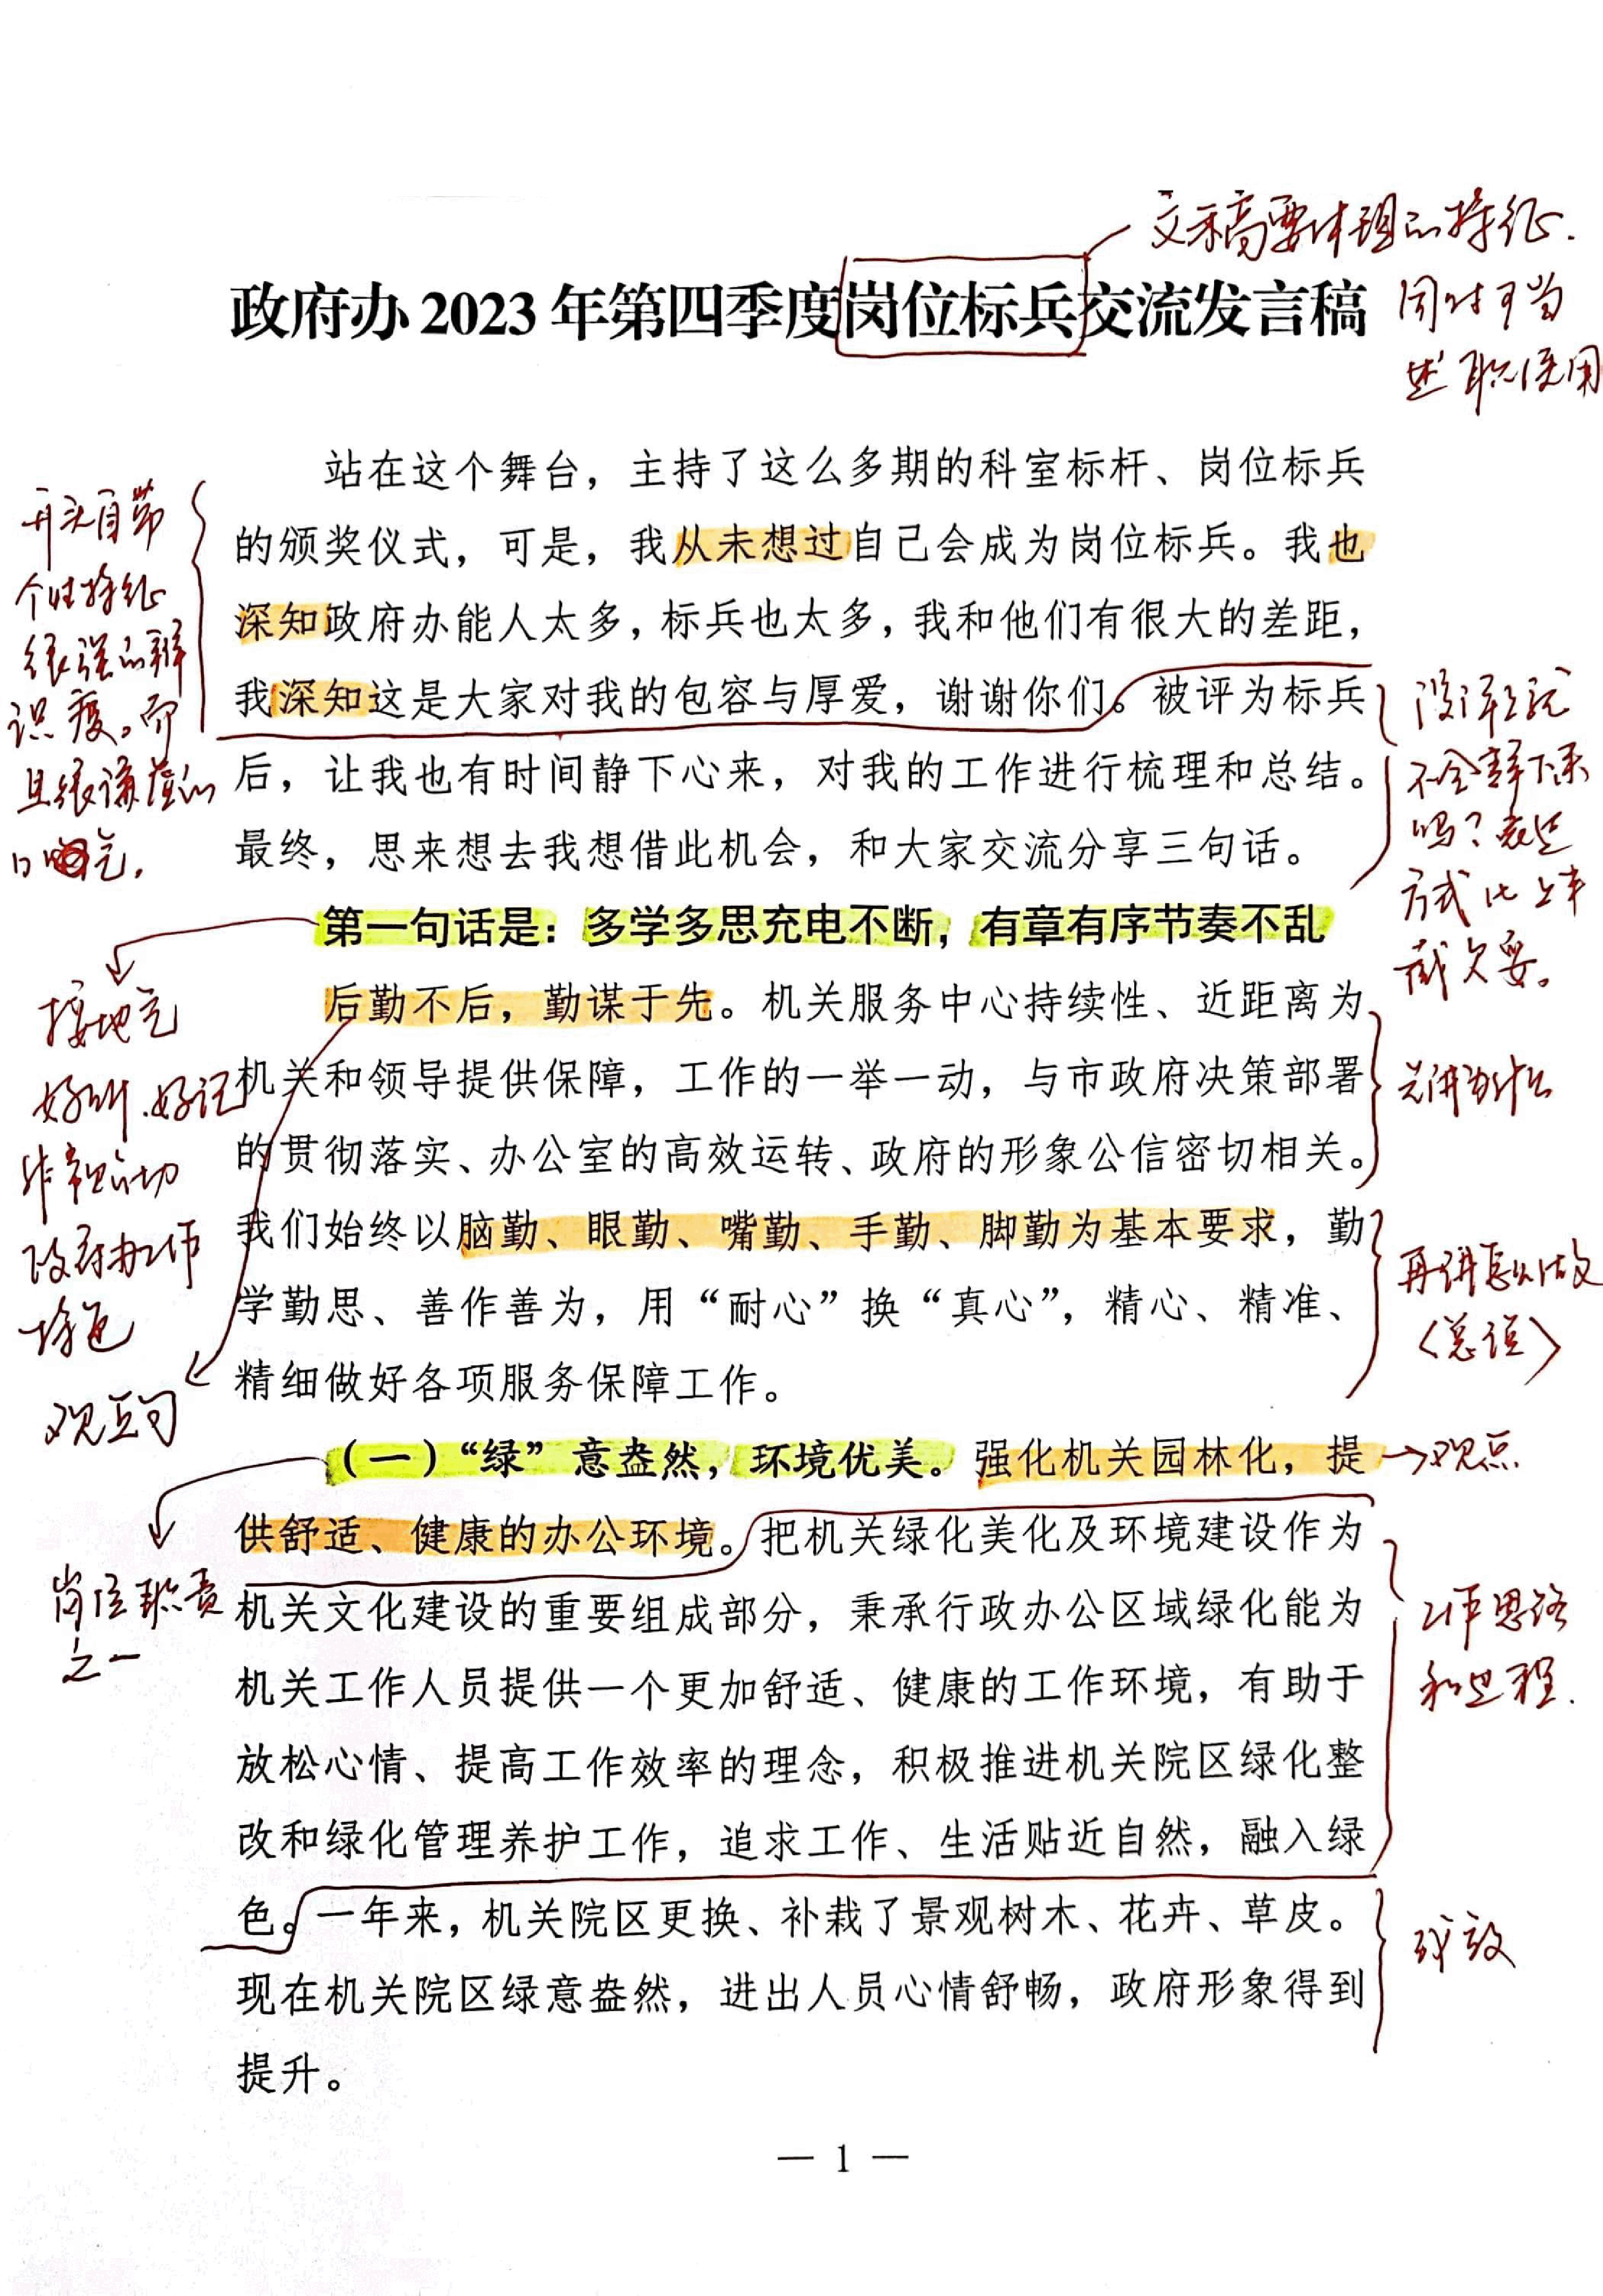 文稿要体现的特征.
同时可当
述职使用
政府办2023年第四季度岗位标兵交流发言稿
站在这个舞台，主持了这么多期的科室标杆、岗位标兵
的颁奖仪式，可是，我从未想过自己会成为岗位标兵。我也
深知政府办能人太多，标兵也太多，我和他们有很大的差距，
我深知这是大家对我的包容与厚爱，谢谢你们。被评为标兵
后，让我也有时间静下心来，对我的工作进行梳理和总结。
最终，思来想去我想借此机会，和大家交流分享三句话。
开头自带
个性特征
很强的辨
识度。而
且很谦虚的
口气.
没评上就
不会静下来
吗？表达
方式比上半
截欠妥。
第一句话是：多学多思充电不断，有章有序节奏不乱
后勤不后，勤谋于先。机关服务中心持续性、近距离为
机关和领导提供保障，工作的一举一动，与市政府决策部署
的贯彻落实、办公室的高效运转、政府的形象公信密切相关。
我们始终以脑勤、眼勤、嘴勤、手勤、脚勤为基本要求，勤
学勤思、善作善为，用“耐心”换“真心”，精心、精准、
精细做好各项服务保障工作。
接地气
好听.好记
非常贴切
政府办工作
特色
观点句
先讲为什么
再讲怎么做
〈总说〉
（一）“绿”意盎然，环境优美。强化机关园林化，提
供舒适、健康的办公环境。把机关绿化美化及环境建设作为
机关文化建设的重要组成部分，秉承行政办公区域绿化能为
机关工作人员提供一个更加舒适、健康的工作环境，有助于
放松心情、提高工作效率的理念，积极推进机关院区绿化整
改和绿化管理养护工作，追求工作、生活贴近自然，融入绿
色。一年来，机关院区更换、补栽了景观树木、花卉、草皮。
现在机关院区绿意盎然，进出人员心情舒畅，政府形象得到
提升。
岗位职责
之一
观点
工作思路
和过程.
成效
— 1 —